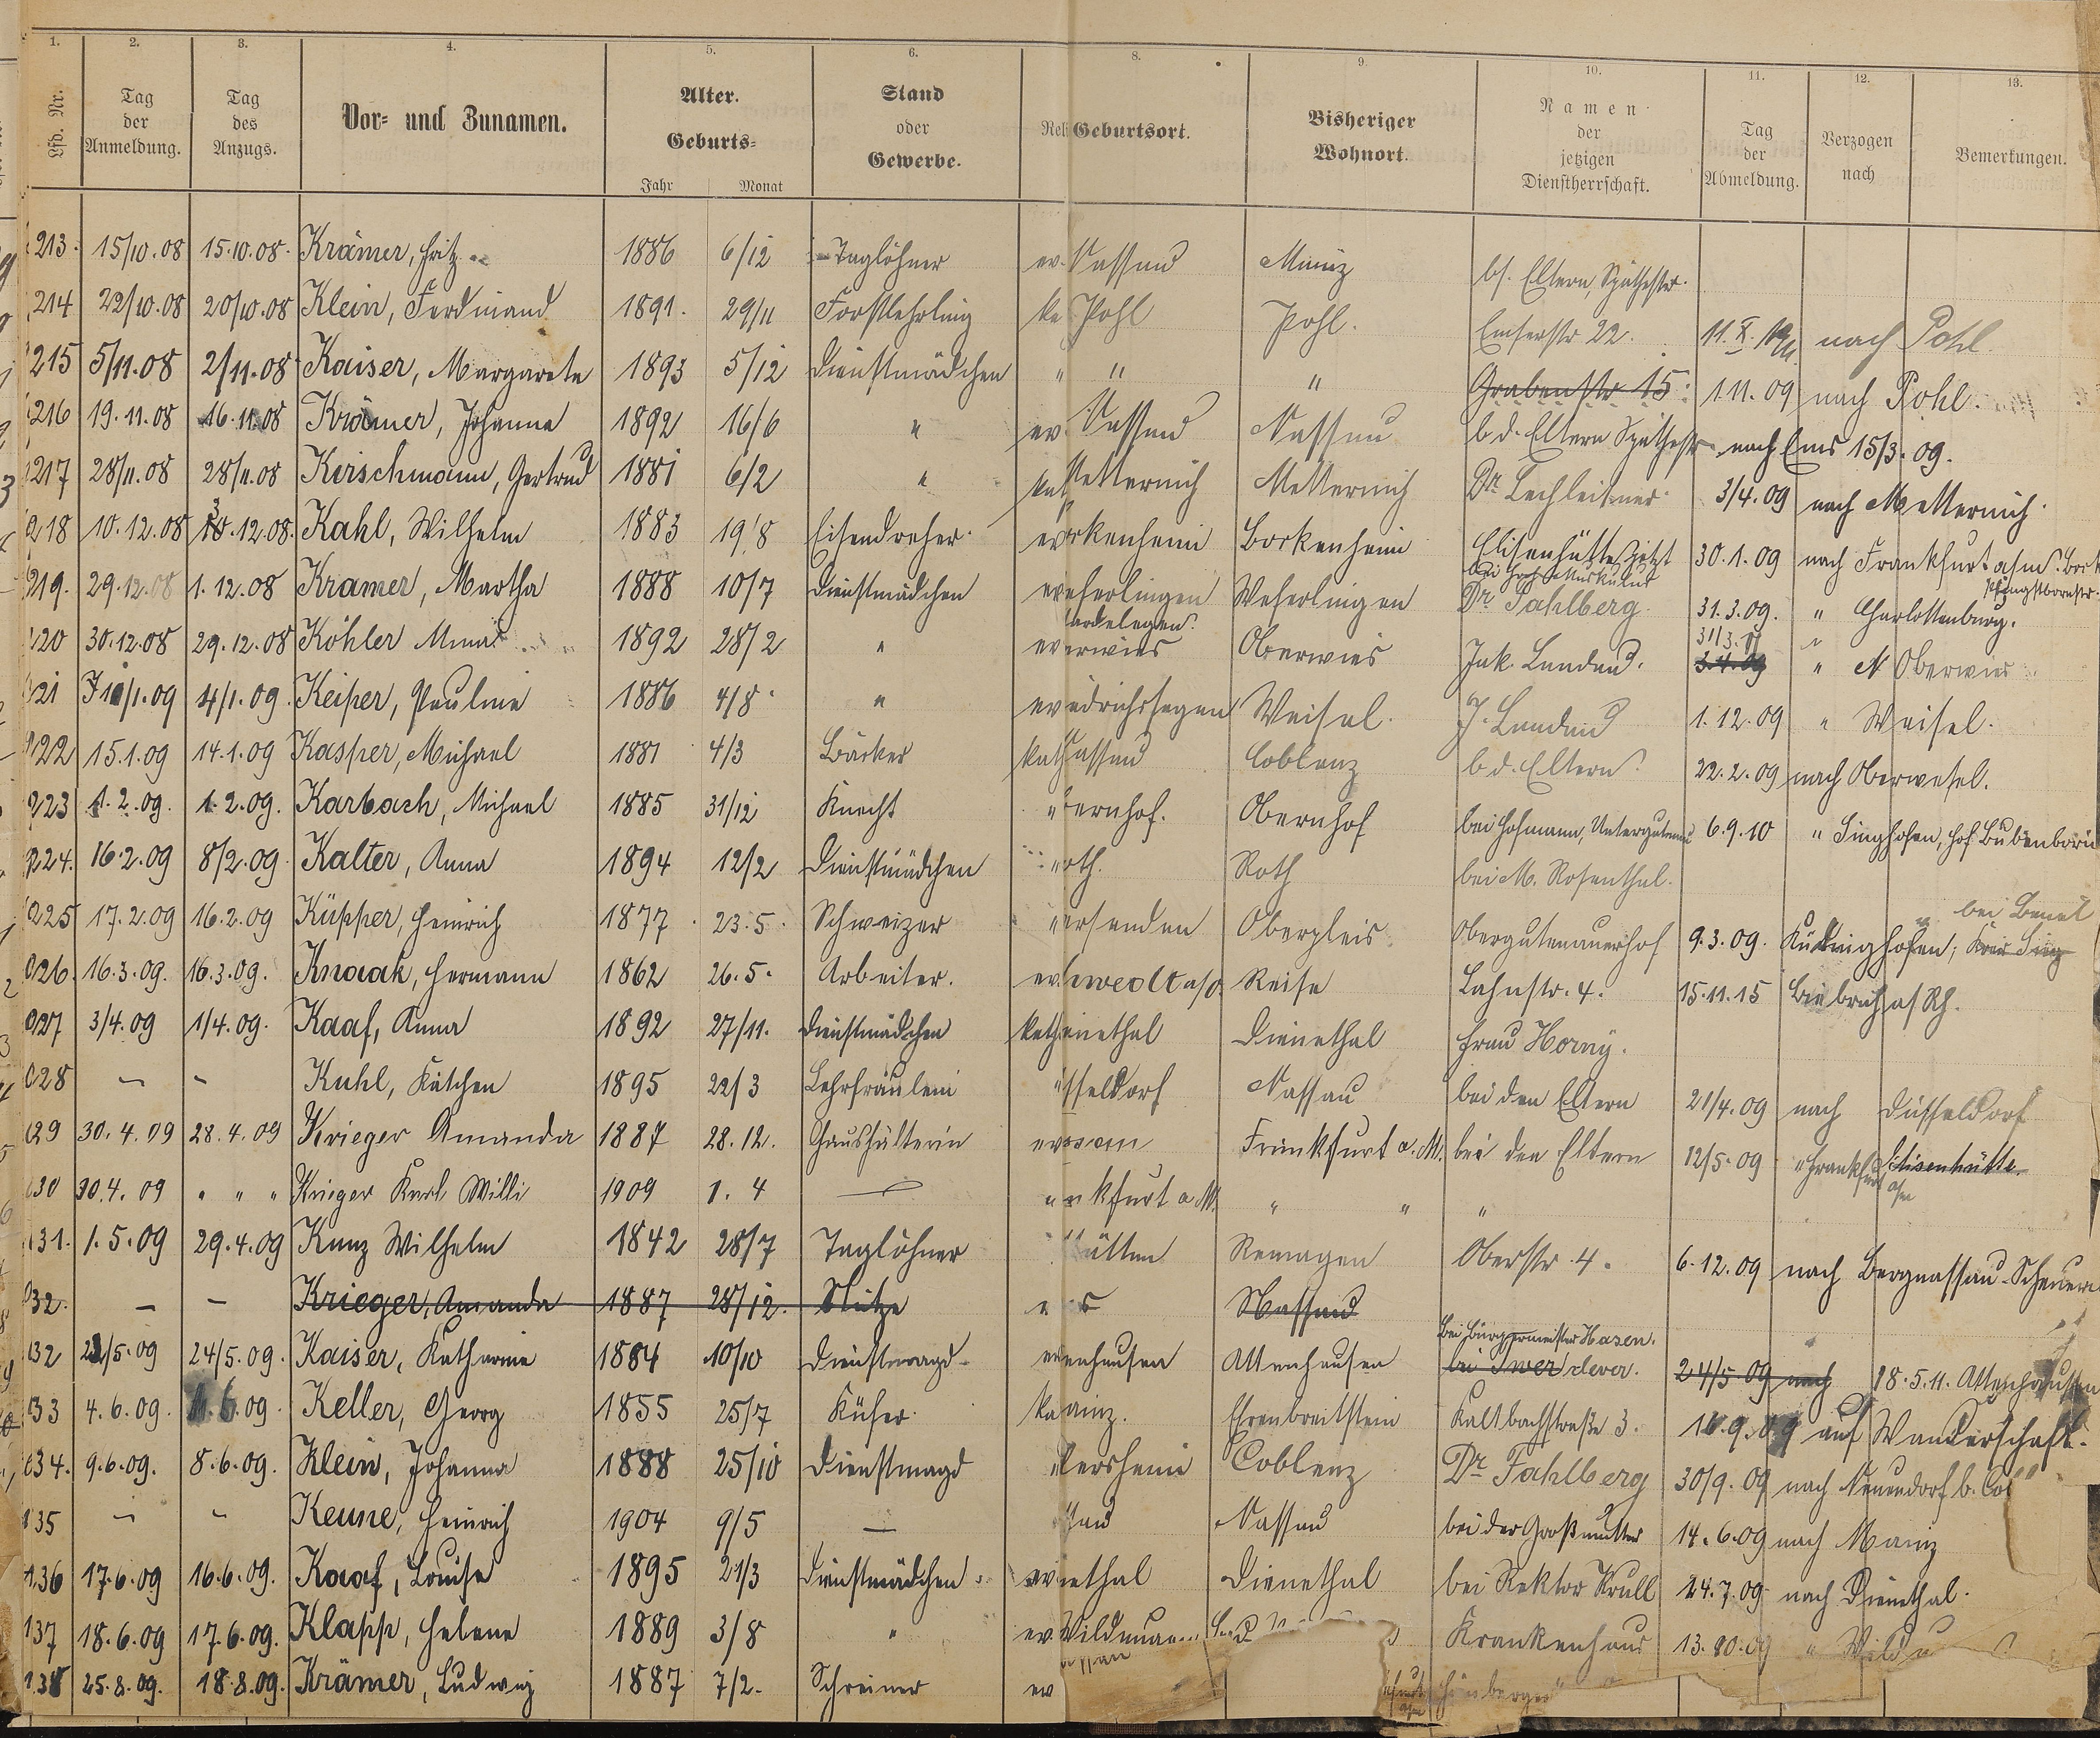 1. 2. 3. 4. 5. 6. 8. 9. 10. 11. 12. 13.
Lfd. Nr. Tag der Anmeldung. Tag des Anzugs. Vor- und Zunamen. Alter. Geburts- Jahr Monat Stand oder Gewerbe. Reli Geburtsort. Bisheriger Wohnort. Namen der jetzigen Dienstherrschaft. Tag der Abmeldung. Verzogen nach Bemerkungen.
213. 15/10.08 15.10.08. Krämer, Fritz 1886 6/12 Taglöhner ev. Nassau Mainz bs. Eltern, Späthestr.
214 22/10.08 20/10.08 Klein, Ferdinand 1891. 29/11 Forstlehrling ka Pohl Pohl. Emserstr 22. 11. X. nach Pohl.
215 5/11.08 2/11.08 Kaiser, Margarete 1893 5/12 Dienstmädchen " " " Grabenstr 15. 1.11.09 nach Pohl.
216 19.11.08 16.11.08 Krämer, Johanna 1892 16/6 " ev. Nassau Nassau b d. Eltern Späthestr nach Ems 15/3.09.
217 28/11.08 28/11.08 Kirschmann, Gertrud 1881 6/2 " kat etternich Metternich Dr. Lechleitner. 3/4.09 nach Metternich.
218 10.12.08 .12.08. Kahl, Wilhelm 1883 19/8 Eisendreher. ev ockenheim Bockenheim Elisenhütte jetzt 30.1.09 nach Frankfurt a/m. Bock
219. 29.12.08 1.12.08 Kramer, Martha 1888 10/7 Dienstmädchen ev eferlingen Weferlingen Dr Fahlberg. 31.3.09. " Charlottenburg.
ardelegen.
220 30.12.08 29.12.08 Köhler Minna 1892 28/2 " ev erwies Oberwies Jak. Landau. 31/3.09 3.4.09 " N Oberwies
221 11/1.09 4/1.09. Keiper, Pauline 1886 4/8. " ev iedrichssegen Weisel. J. Landau 1.12.09 " Weisel.
222 15.1.09 14.1.09 Kasper, Michael 1881 4/3 Bäcker kath assau Coblenz b d. Eltern. 22.2.09 nach Oberwesel.
223 1.2.09. 1.2.09. Karbach, Michael 1885 31/12 Knecht " bernhof. Obernhof bei Hofmann, 6.9.10 " Singhofen, Hof Bubenborn
224. 16.2.09 8/2.09 Kalter, Anna 1894 12/2 Dienstmädchen " oth. Roth bei M. Rosenthal.
225 17.2.09 16.2.09 Küpper, Heinrich 1877. 23.5. Schweizer " Oberpleis. Obergutenauerhof 9.3.09. Küdinghofen, bei Beuel Kreis Sieg
226. 16.3.09. 16.3.09. Knaak, Hermann 1862 26.5. Arbeiter. ev. Reise Lahnstr. 4. 15.11.15 Biebrich a/Rh.
227 3/4.09 1/4.09. Kaaf, Anna 1892 27/11. Dienstmädchen kath ienethal Dienethal Frau Horny.
228 – – Kuhl, Kätchen 1895 22/3 Lehrfräulein " sseldorf Nassau bei den Eltern 21/4.09 nach Düsseldorf
229 30.4.09 28.4.09 Krieger Amanda 1887 28.12. Haushälterin ev Frankfurt a.M. bei den Eltern 12/5.09 " Frankfurt a/m Elisenhütte
230 30.4.09 " " " Krieger Karl Willi 1909 1.4 – " nkfurt a M. " " "
231. 1.5.09 29.4.09 Kunz Wilhelm 1842 28/7 Taglöhner ütten Remagen Oberstr 4. 6.12.09 nach Bergnassau-Scheuern
232. – – Krieger, Amanda 1887 28/12. Stütze " Nassau
232 /5.09 24/5.09. Kaiser, Katharina 1884 10/10 Dienstmagd ev enhausen Attenhausen Bei Bürgermeister Hasenclever. 24/5 09 nach 18.5.11. Attenhausen
233 4.6.09. .6.09 Keller, Georg 1855 25/7 Küfer. ka ainz. Ehrenbreitstein Kaltbachstraße 3. 16.9.09 auf Wanderschaft.
234. 9.6.09. 8.6.09. Klein, Johanna 1888 25/10 Dienstmagd " ersheim Coblenz Dr Fahlberg 30/9.09 nach Neuendorf b. Co
235 – – Keune, Heinrich 1904 9/5 – au Nassau bei der Großmutter 14.6.09 nach Mainz
236 17.6.09 16.6.09. Kaaf, Louise 1895 21/3 Dienstmädchen. ev ienethal Dienethal bei Rektor Krull 24.7.09 nach Dienethal.
237 18.6.09 17.6.09. Klapp, Helene 1889 3/8 " ev. Wildun Bad Krankenhaus 13.10.09 " Wildu
238 25.8.09. 18.8.09. Krämer, Ludwig 1887 7/2. Schreiner ev